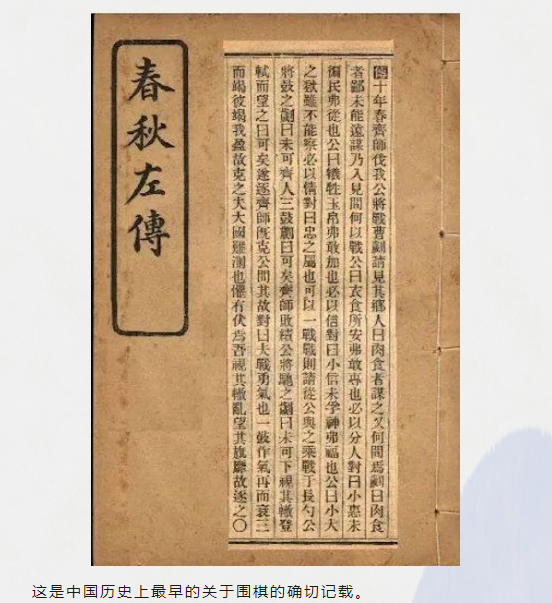 春秋左傳
傳十年春齊師伐我公將戰曹劌請見其鄉人曰肉食者謀之又何間焉劌曰肉食
者鄙未能遠謀乃入見問何以戰公曰衣食所安弗敢專也必以分人對曰小惠未
徧民弗從也公曰犧牲玉帛弗敢加也必以信對曰小信未孚神弗福也公曰小大
之獄雖不能察必以情對曰忠之屬也可以一戰戰則請從公與之乘戰于長勺公
將鼓之劌曰未可齊人三鼓劌曰可矣齊師敗績公將馳之劌曰未可下視其轍登
軾而望之曰可矣遂逐齊師既克公問其故對曰夫戰勇氣也一鼓作氣再而衰三
而竭彼竭我盈故克之夫大國難測也懼有伏焉吾視其轍亂望其旗靡故逐之〇
这是中国历史上最早的关于围棋的确切记载。